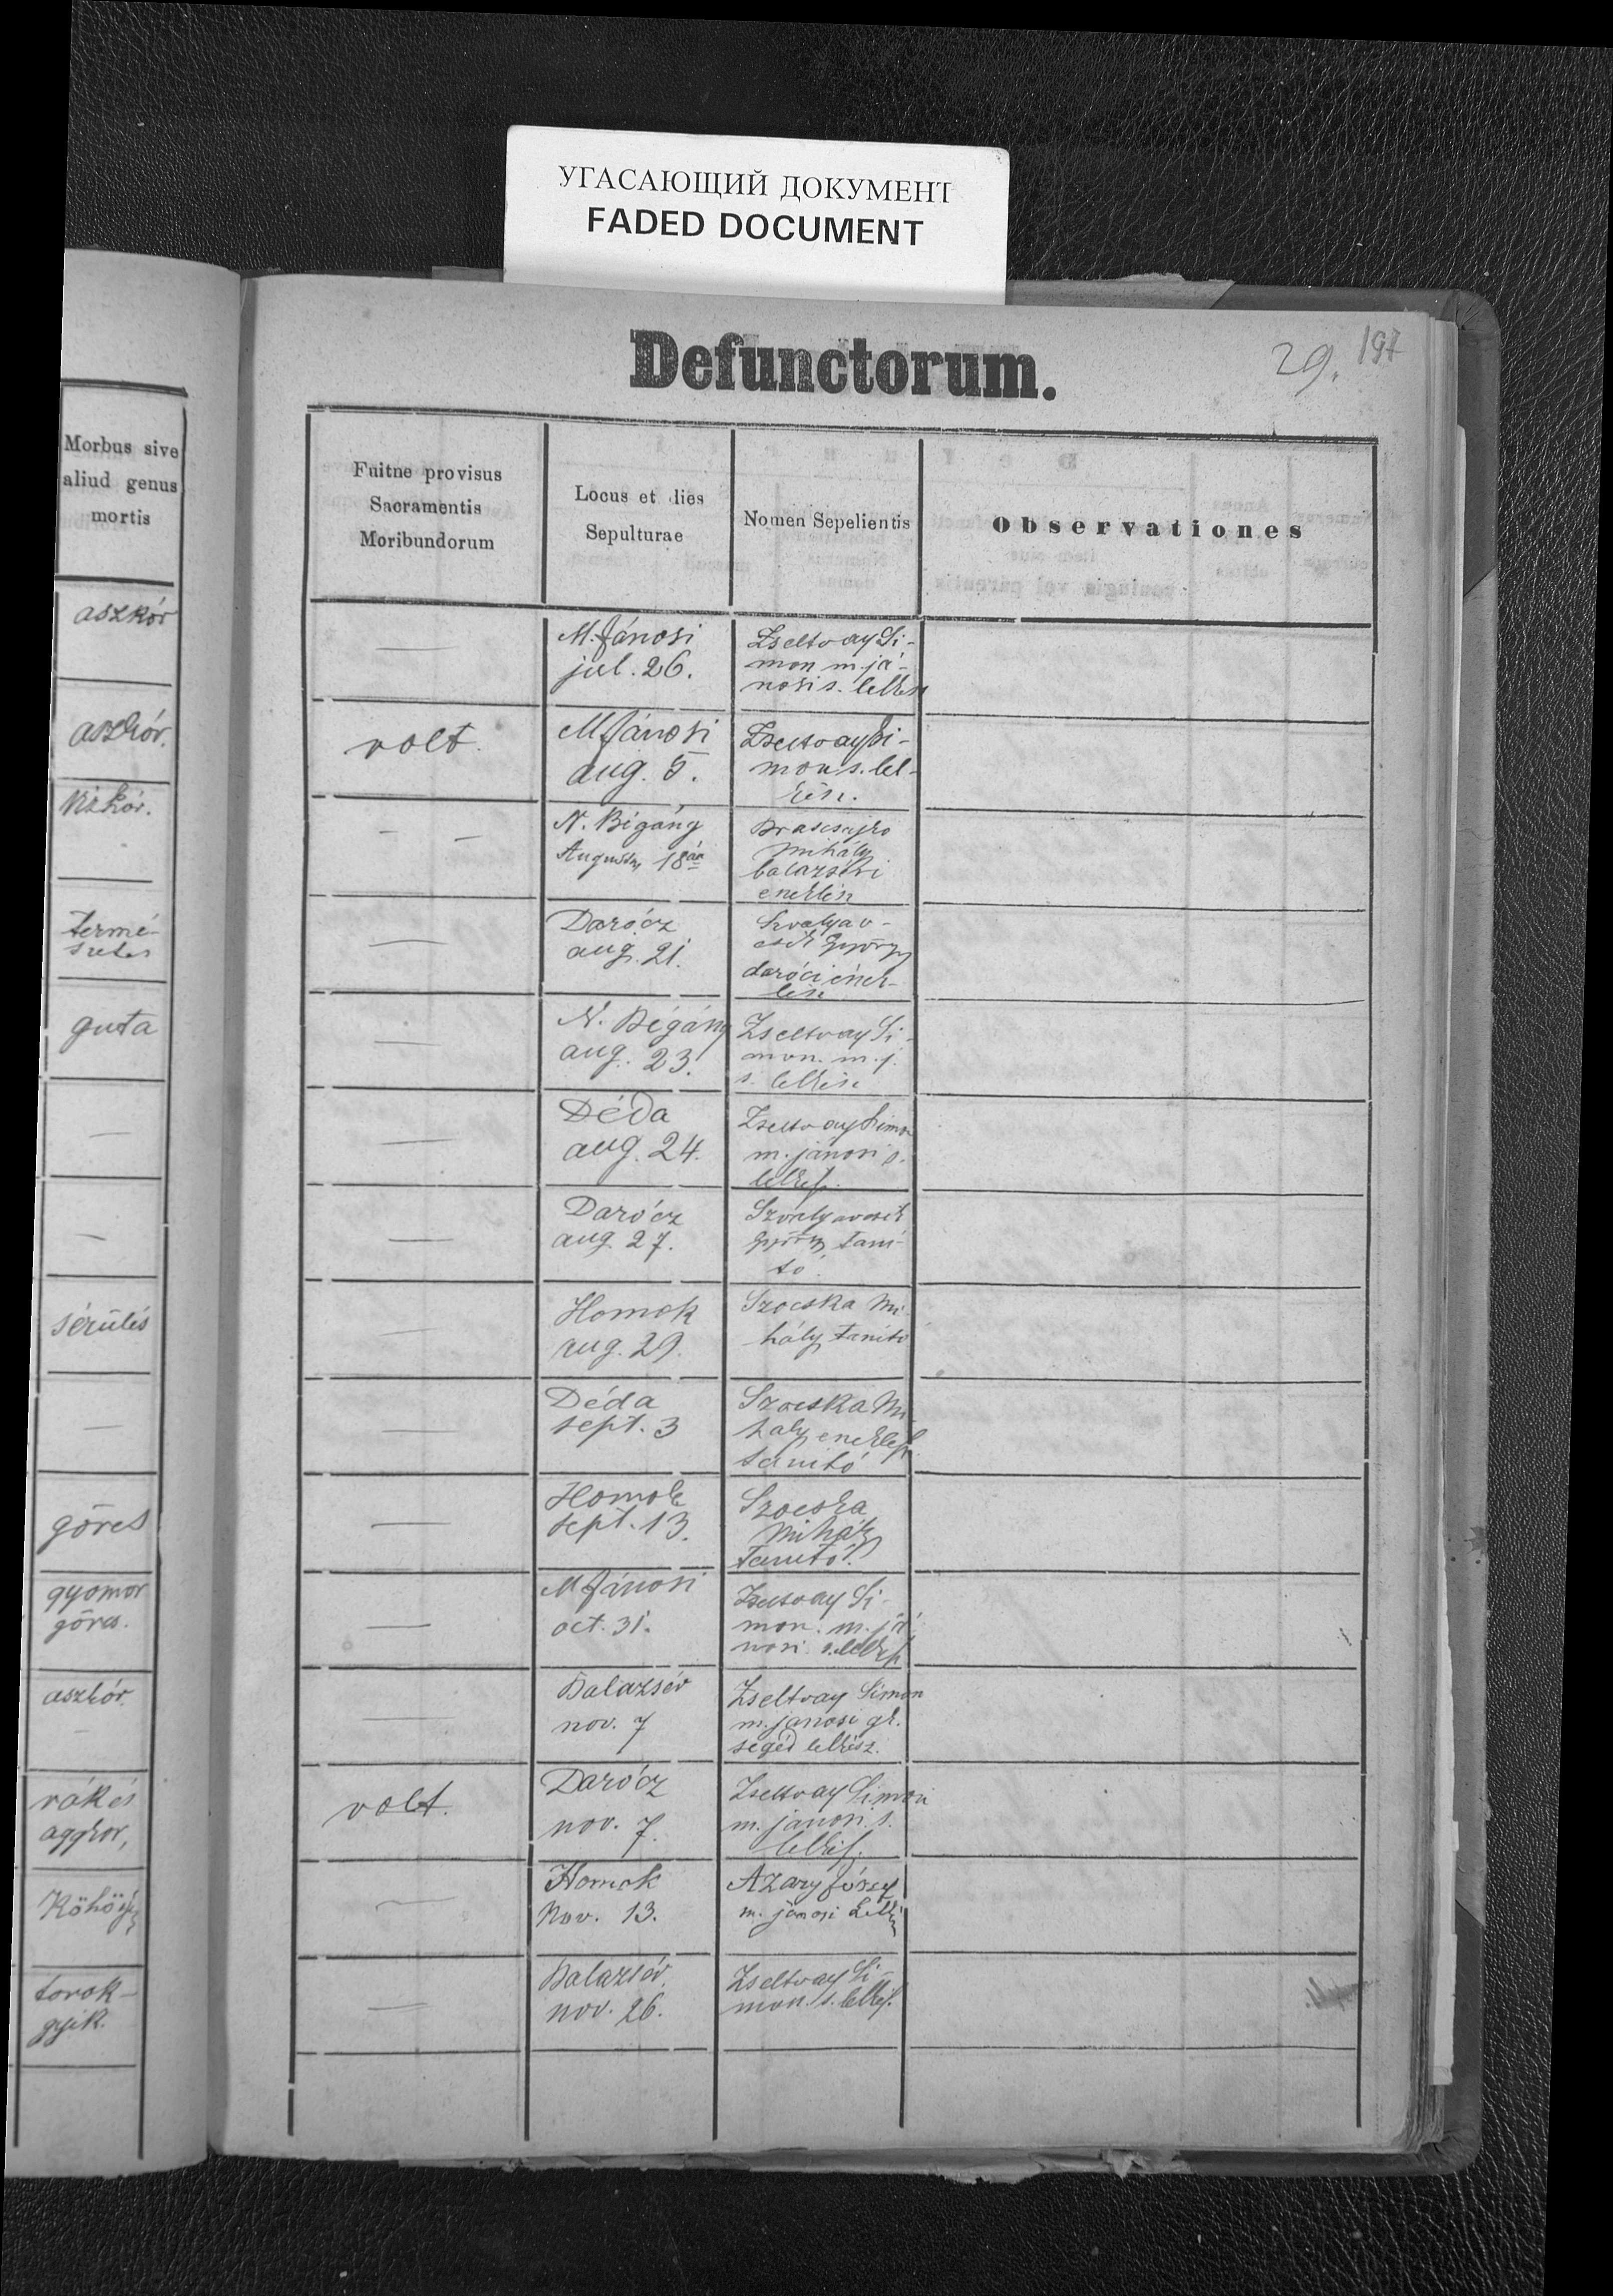 УГАСАЮЩИЙ ДОКУМЕНТ
FADED DOCUMENT
Defunctorum.
29.
197
Morbus sive
aliud genus
mortis
Fuitne provisus
Sacramentis
Moribundorum
Locus et dies
Sepulturae
Nomen Sepelientis
Observationes
aszkór
—
M. Jánosi
jul. 26.
Zseltvay Si-
mon m. já-
nosi s. lelkész
aszkór.
volt.
M Jánosi
aug. 5.
Zseltvay Si-
mon s. lel-
kész.
Vizkór.
— —
N. Bégány
Augustus 18án
Mihály
balazsévi
éneklész
termé-
szetes
—
Darócz
aug. 21.
Szolyav-
csik György
daróci ének-
lész
guta
—
N. Bégány
aug. 23.
Zseltvay Si-
mon. m. j.
s. lelkész
—
—
Déda
aug. 24.
Zseltvay Simon
m. jánosi s.
lelkész.
—
—
Darócz
aug 27.
Szolyavcsik
György tani-
tó.
sérülés
—
Homok
aug. 29.
Szocska Mi-
hály tanitó
—
—
Déda
sept. 3
Szocska Mi-
haly
tanitó
görcs
—
Homok
sept. 13.
Szocska
Mihály
tanitó.
gyomor
görcs.
—
M Jánosi
oct. 31.
Zseltvay Si-
mon. m. já-
nosi s. lelkész
aszkór.
—
Balazsév
nov. 7
Zseltvay Simon
m. janosi gk.
segéd lelkész.
rák és
aggkor,
volt.
Darócz
nov. 7.
Zseltvay Simon
m. janosi s.
lelkész.
—
Homok
Nov. 13.
Azary József
m. jánosi
torok-
gyik.
—
Balazsév.
nov. 26.
Zseltvay Si-
mon. s. lelkész.